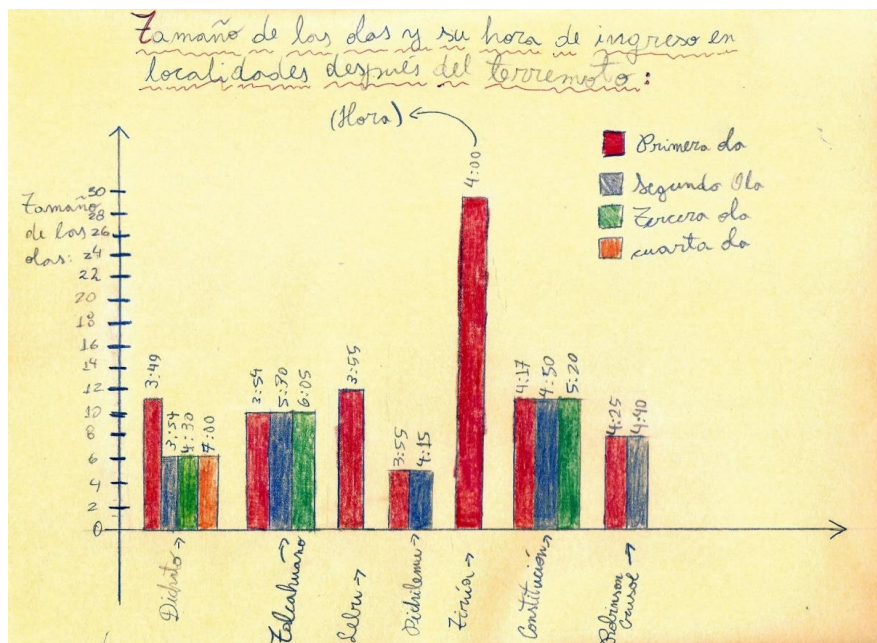 Tamaño de las olas y su hora de ingreso en
localidades después del terremoto:
(Hora)
Primera ola
Segundo Ola
Tercera ola
cuarta ola
Tamaño
de las
olas:
30
28
26
24
22
20
18
16
14
12
10
8
6
4
2
0
3:49
3:54
4:30
7:00
3:54
5:30
6:05
3:55
3:55
4:15
4:00
4:17
4:50
5:20
4:25
4:40
Dichato →
Talcahuano →
Lebu →
Pichilemu →
Tirúa →
Constitución →
Robinson
Crusoe →